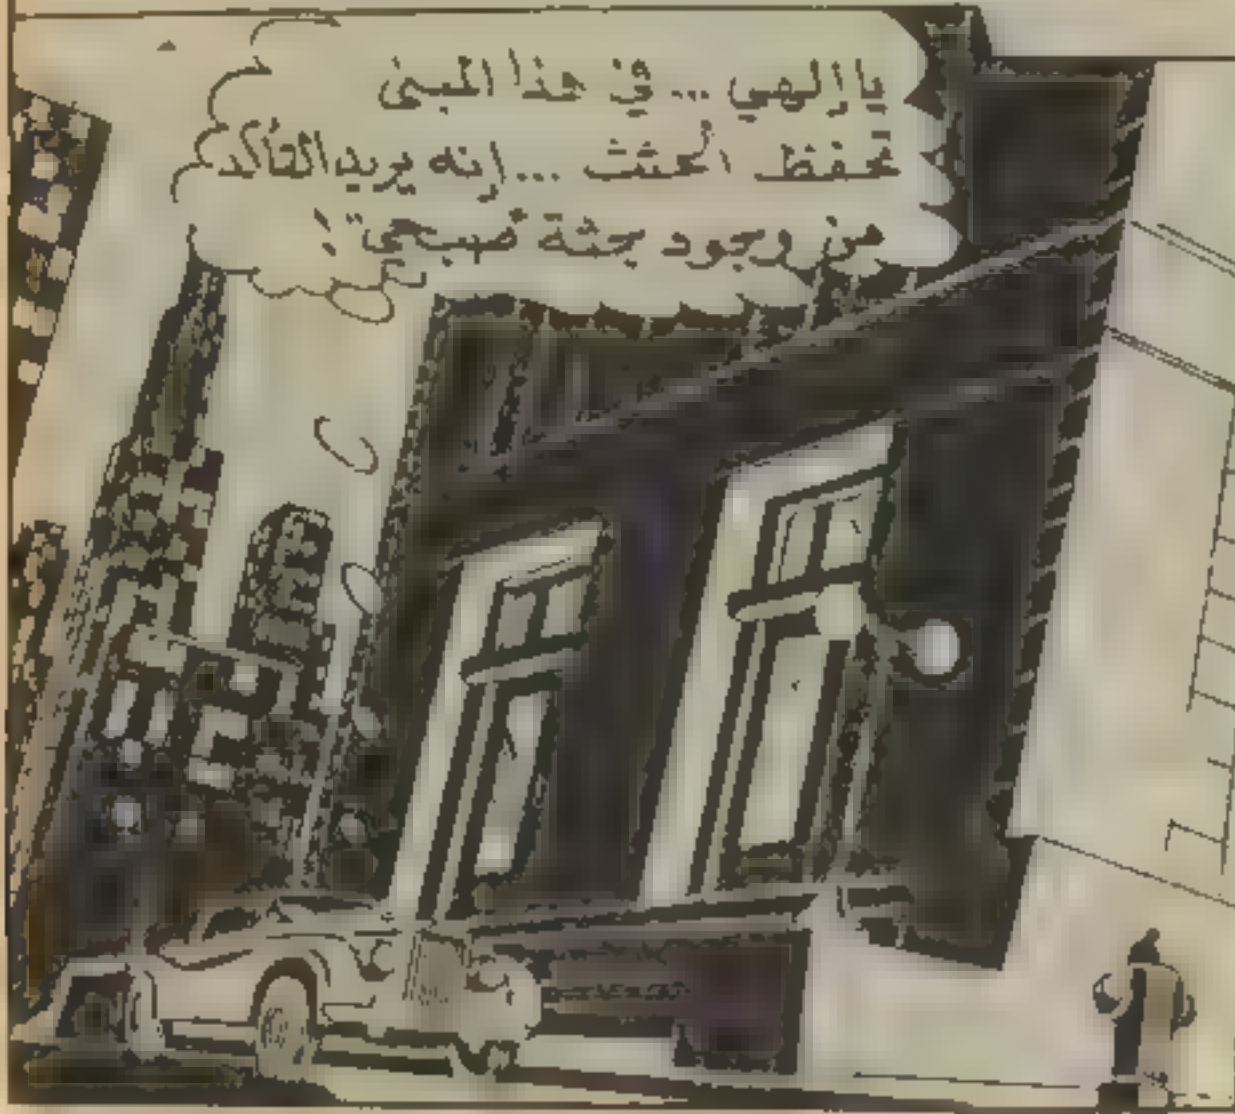 يا إلهي ... في هذا المبنى
تحفظ الجثث ... إنه يريد التأكد
من وجود جثة "صبحي"!